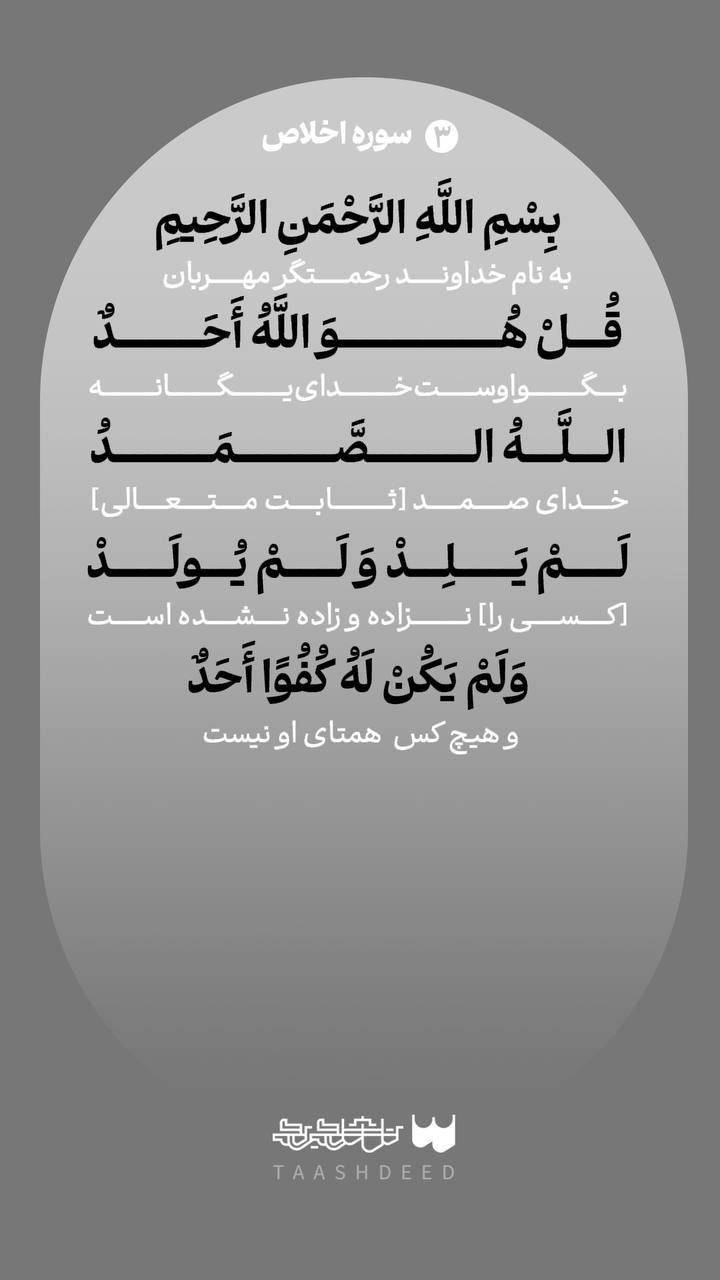 ۳ سوره اخلاص
بِسْمِ اللَّهِ الرَّحْمَنِ الرَّحِيمِ
به نام خداوند رحمتگر مهربان
قُلْ هُوَ اللَّهُ أَحَدٌ
بگو اوست خدای یگانه
اللَّهُ الصَّمَدُ
خدای صمد [ثابت متعالی]
لَمْ يَلِدْ وَلَمْ يُولَدْ
[کسی را] نزاده و زاده نشده است
وَلَمْ يَكُنْ لَهُ كُفُوًا أَحَدٌ
و هیچ کس همتای او نیست
TAASHDEED